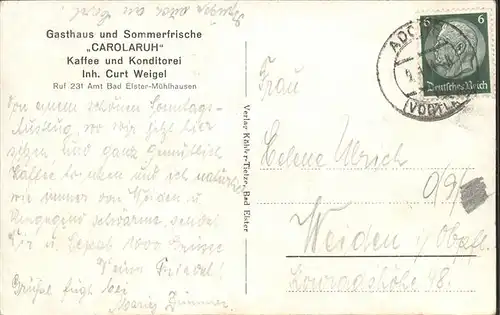 Grüße auch an
Gasthaus und Sommerfrische
„CAROLARUH"
Kaffee und Konditorei
Inh. Curt Weigel
Ruf 231 Amt Bad Elster-Mühlhausen
Von einem schönen Sonntags-
Ausflug, wo wir jetzt hier
sitzen, und ganz gemütlich
Kaffee trinken und ich natürlich
wie immer von Weiden u.
Umgegend schwärme, sendet
Dir u. 1000 Grüsse
Deine Friedel!
Grüße fügt bei
Zimmer.
Verlag Köhler-Tietze, Bad Elster
ADORF
(VOGTL.)
6 6
Deutsches Reich
Frau
Helene Ulrich
Weiden / Obpf.
Konradshöhe 48.